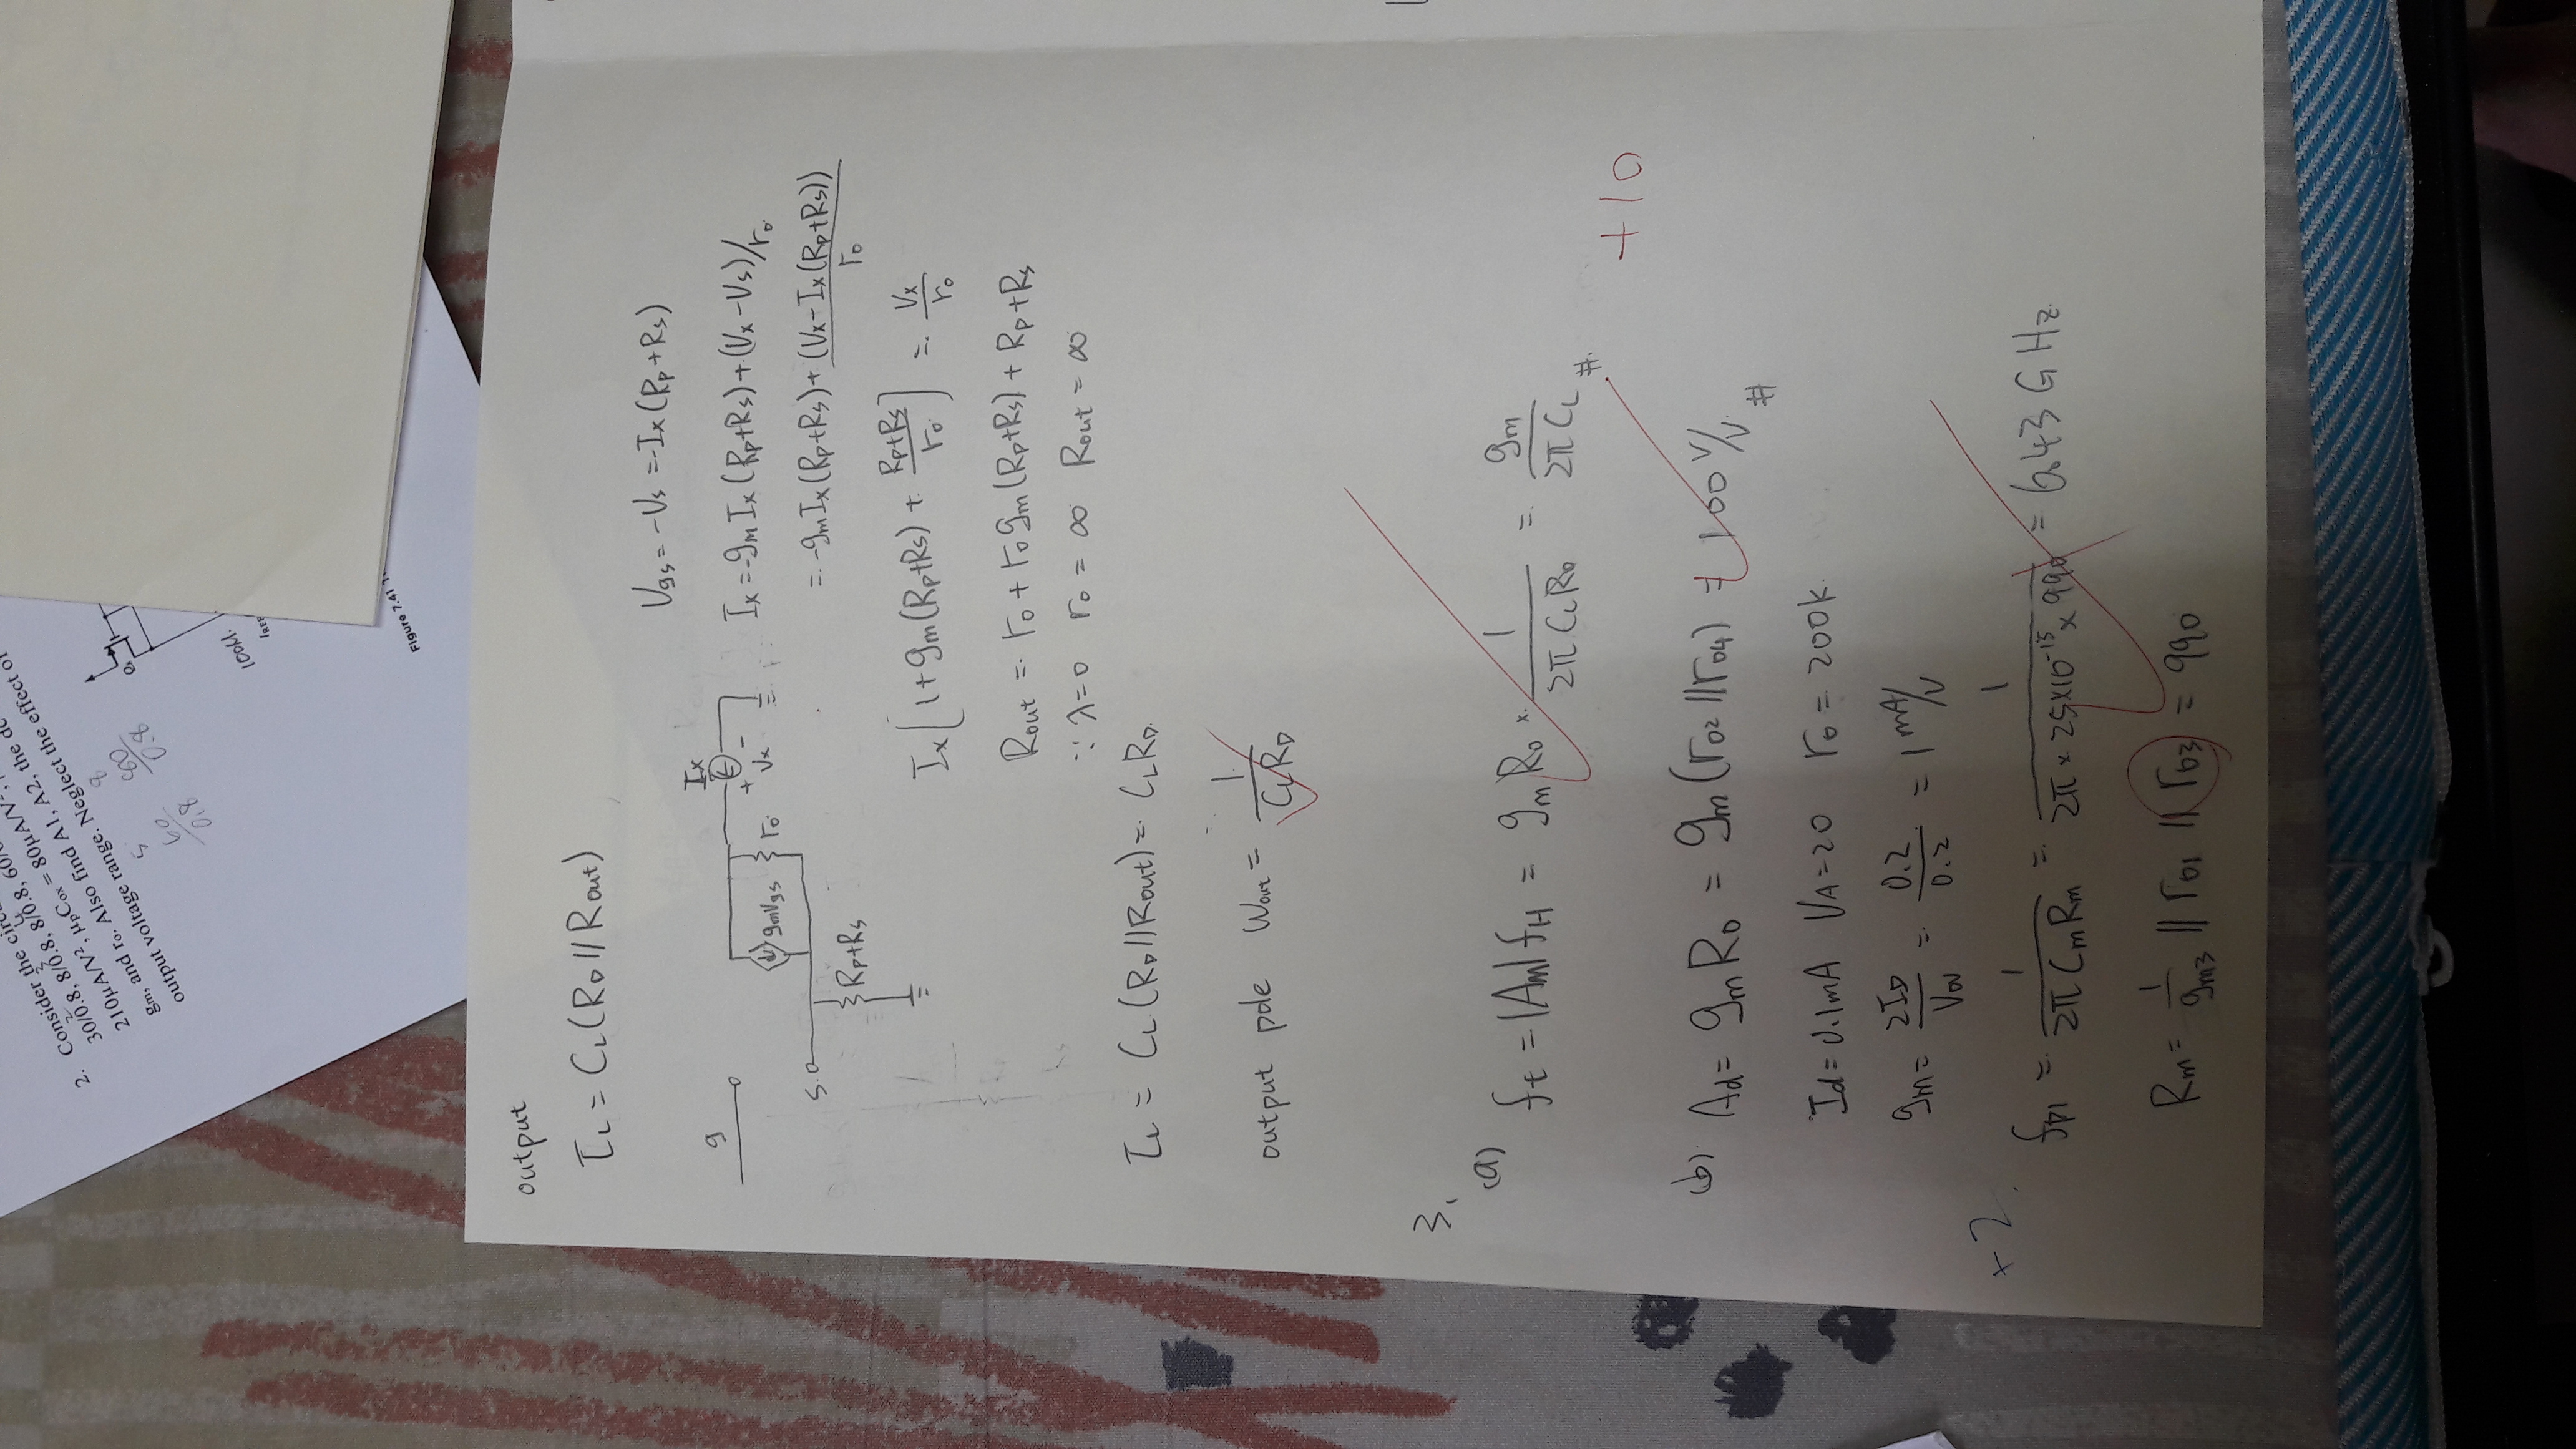 2. Consider the circ
30/0.8, 8/0.8, 8/0.8, 60/0
210μA/V², μpCox = 80μA/V²,
gm, and ro. Also find A1, A2, the dc
output voltage range. Neglect the effect of
5
60/0.8
8
60/0.8
100M.
IREF
Figure 7.41
output
τL = CL(RD//Rout)
Vgs = -Vs = -Ix(Rp+Rs)
g
Ix
gmVgs
ro
+ Vx -
S
Rp+Rs
Ix = -gm Ix (Rp+Rs) + (Vx-Vs)/ro
= -gm Ix (Rp+Rs) + (Vx-Ix(Rp+Rs))/ro
Ix [1+gm(Rp+Rs) + (Rp+Rs)/ro] = Vx/ro
Rout = ro + ro gm (Rp+Rs) + Rp+Rs
∵ λ=0 ro = ∞ Rout = ∞
τL = CL (RD//Rout) = CLRD
output pole Wout = 1/CLRD
3.
(a) ft = |Am| fH = gm Ro × 1/2π CL Ro = gm/2π CL #
+10
(b) Ad = gm Ro = gm (ro2 // ro4) = 100 V/V #
Id = 0.1mA VA = 20 ro = 200k
gm = 2ID/Vov = 0.2/0.2 = 1 mA/V
+2
fp1 = 1/2π Cm Rm = 1/2π × 25×10⁻¹⁵ × 990 = 6.43 G Hz
Rm = 1/gm3 // ro1 // ro3 = 990